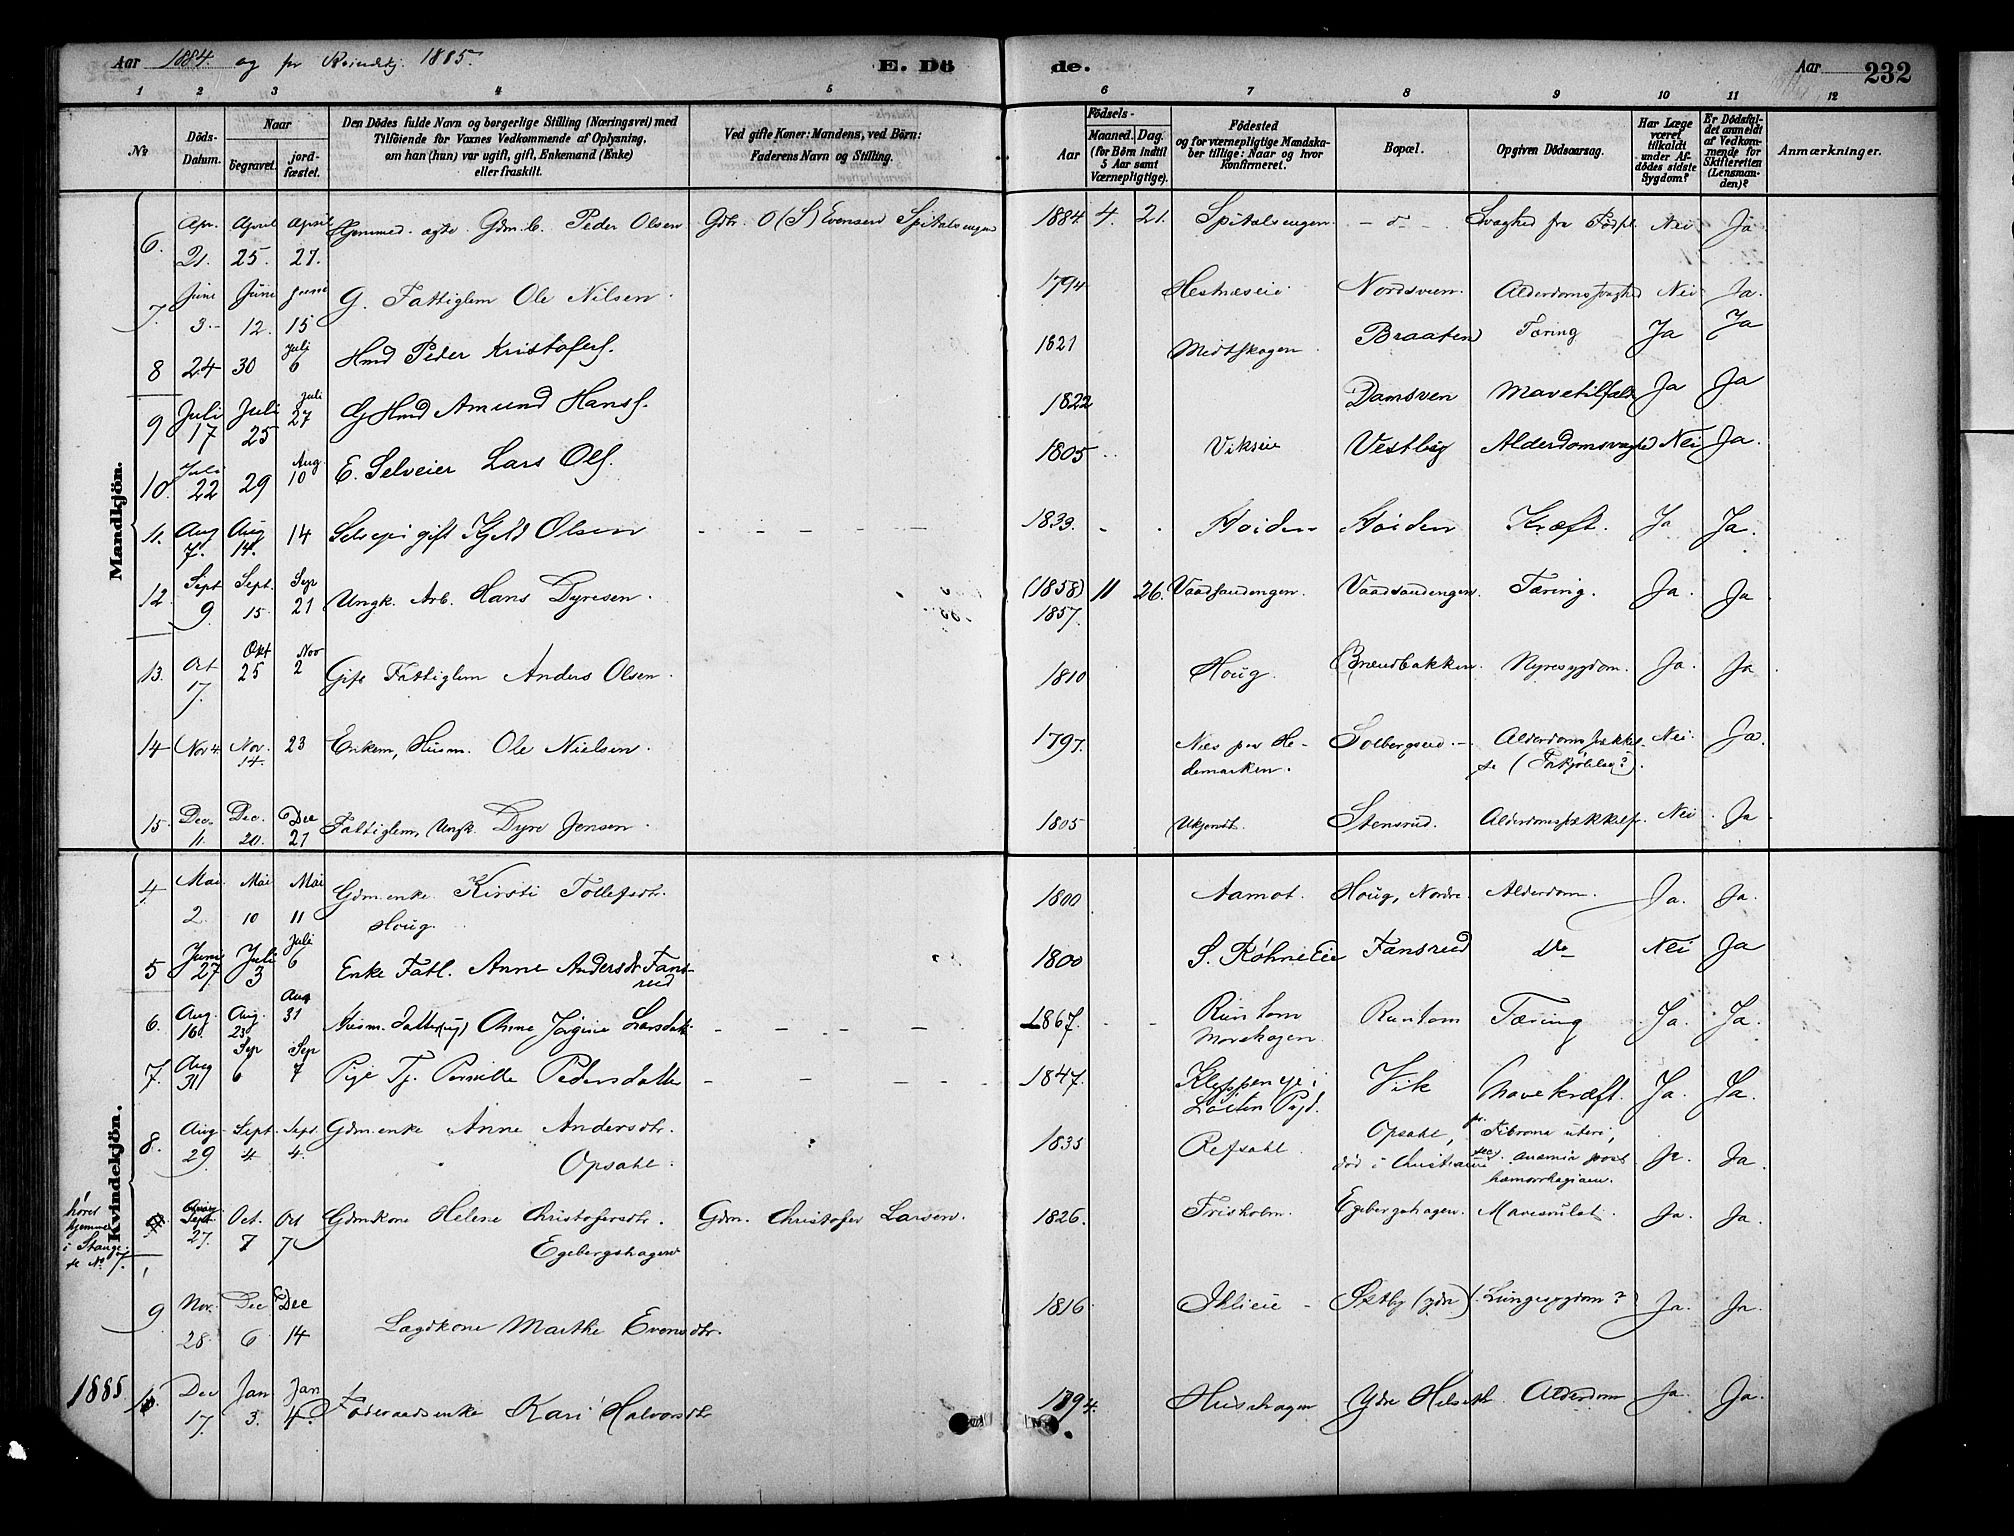 Aar 1884 og for Kvindekj. 1885.
E. Dö
de.
Aar
232
1 2 3 4 5 6 7 8 9 10 11 12
No.
Döds-Datum.
Naar
begravet.
jord-fæstet.
Den Dödes fulde Navn og borgerlige Stilling (Næringsvei) med
Tilföiende for Voxnes Vedkommende af Oplysning,
om han (hun) var ugift, gift, Enkemand (Enke)
eller fraskilt.
Ved gifte Koner: Mandens, ved Börn:
Faderens Navn og Stilling.
Födsels-
Aar
Maaned. Dag.
(for Börn indtil
5 Aar samt
Værnepligtige).
Födested
og for værnepligtige Mandska-
ber tillige: Naar og hvor
konfirmeret.
Bopæl.
Opgiven Dödsaarsag.
Har Læge
været
tilkaldt
under Af-
dödes sidste
Sygdom?
Er Dödsfal-
det anmeldt
af Vedkom-
mende for
Skifteretten
(Lensman-
den)?
Anmærkninger.
Mandkjön.
6. Apr. 21. April 25. April 27. Hjemmed. ægte Gdm.b. Peder Olsen Gdbr. O (S) Evensen Spitalsengen 1884 4. 21. Spitalsengen Svaghed fra Fødsl. Nei Ja
7. Juni 3. Juni 12. Juni 15 G. Fattiglem Ole Nilsen. 1794 Hestnæseie Nordsveen. Alderdomssvaghed Nei Ja.
8 24 30 Juli 6 Hmd Peder Kristofers. 1821 Midtskogen Braaten Tæring Ja Ja
9 Juli 17 Juli 25 Juli 27 G Hmd Amund Hanss. 1822 Damsven Mavetilfæld Ja Ja
10. Juli 22 29 Aug. 10 E. Selveier Lars Ols. 1805 Vikseie Vestby Alderdomsvaghed Nei Ja.
11. Aug 7. Aug 14. 14 Selveier gift Kjeld Olsen 1833. Hoiden Hoiden Kræft. Ja Ja.
12. Sept 9. Sept. 15. Sep 21 Ungk. Arb. Hans Dyresen. (1858) 1857. 11 26. Vaadsandengen. Vaadsandengen. Tæring. Ja. Ja
13. Oct 17. Okt 25 Nov 2 Gift Fattiglem Anders Olsen. 1810 Houg. Brændbakken. Nyresygdom. Ja. Ja
14 Nov 4. Nov. 14. 23 Enkem, Husm. Ole Nielsen. 1797. Næs paa He-
demarken. Solbergseie. Alderdomssvækkel-
se (Forkjølelse?). Nei. Ja.
15. Dec. 11. Dec. 20. Dec 21 Fattiglem, Ungk. Dyre Jensen. 1805 Ukjendt. Stensrud. Alderdomssvækkelse. Nei Ja.
Kvindekjön.
4 Mai 2. Mai 10 Mai 11 Gdm.enke Kirsti Tollefsdtr.
Houg. 1800 Aamot. Houg, Nordre. Alderdom. Ja. Ja.
5 Juni 27 Juli 3 Juli 6 Enke Fatl. Anne Andersdtr Fans-
rud 1800 S. Køhne Eie Fansrud Do Nei Ja
6. Aug. 16. Aug. 23 Aug 31 Husm. datter (ug) Anne Jørgine Larsdatter 1867. Runtom
Morskogen. Runtom Tæring Ja. Ja.
7. Aug 31 Sep 6 Sep 7 Pige Tj. Pernille Pedersdatter 1847. Kleppen eje i
Løiten Pgd. Vik Mavekræft. Ja. Ja.
8. Aug. 29 Sept. 4. Sept. 4. Gdm.enke Anne Andersdtr.
Opsahl. 1835 Refsahl Opsahl,
død i Christiania Fibroma uteri,
anæmia post
hæmorrhagiam. Ja. Ja.
hører
hjemme
i Stange
se No 7. Sept. 27. Oct. 7 Oct 7 Gdmkone Helene Christofersdtr.
Egebergshagen Gdm. Christofer Larsen. 1826. Frisholm. Egebergshagen. Mavesvulst. Ja. Ja.
9 Nov. 28. Dec 6. Dec 14 Lægdkone Marthe Evensdtr. 1816. Ihlieie Sætby (ydr) Lungesygdom? Ja. Ja.
1885 10 Dec 17. Jan 3. Jan 4. Føderaadsenke Kari Halvorsdtr 1794. Husehagen Ydre Helseth Alderdom Ja. Ja.